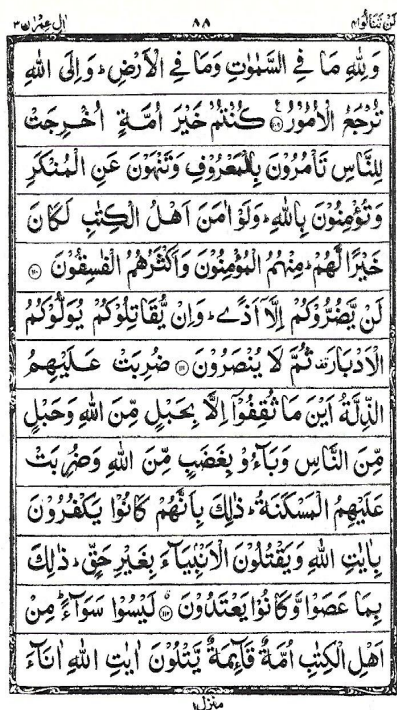 لن تنالوا ۴ ۸۸ اٰل عمرٰن ۳
وَلِلّٰهِ مَا فِي السَّمٰوٰتِ وَمَا فِي الْاَرْضِ ؕ وَاِلَى اللّٰهِ
تُرْجَعُ الْاُمُوْرُ ۝۱۰۹ كُنْتُمْ خَيْرَ اُمَّةٍ اُخْرِجَتْ
لِلنَّاسِ تَاْمُرُوْنَ بِالْمَعْرُوْفِ وَتَنْهَوْنَ عَنِ الْمُنْكَرِ
وَتُؤْمِنُوْنَ بِاللّٰهِ ؕ وَلَوْ اٰمَنَ اَهْلُ الْكِتٰبِ لَكَانَ
خَيْرًا لَّهُمْ ؕ مِنْهُمُ الْمُؤْمِنُوْنَ وَاَكْثَرُهُمُ الْفٰسِقُوْنَ ۝۱۱۰
لَنْ يَّضُرُّوْكُمْ اِلَّاۤ اَذًى ؕ وَاِنْ يُّقَاتِلُوْكُمْ يُوَلُّوْكُمُ
الْاَدْبَارَ ۟ ثُمَّ لَا يُنْصَرُوْنَ ۝۱۱۱ ضُرِبَتْ عَلَيْهِمُ
الذِّلَّةُ اَيْنَ مَا ثُقِفُوْۤا اِلَّا بِحَبْلٍ مِّنَ اللّٰهِ وَحَبْلٍ
مِّنَ النَّاسِ وَبَآءُوْ بِغَضَبٍ مِّنَ اللّٰهِ وَضُرِبَتْ
عَلَيْهِمُ الْمَسْكَنَةُ ؕ ذٰلِكَ بِاَنَّهُمْ كَانُوْا يَكْفُرُوْنَ
بِاٰيٰتِ اللّٰهِ وَيَقْتُلُوْنَ الْاَنْۢبِيَآءَ بِغَيْرِ حَقٍّ ؕ ذٰلِكَ
بِمَا عَصَوْا وَّكَانُوْا يَعْتَدُوْنَ ۝۱۱۲ لَيْسُوْا سَوَآءً ؕ مِنْ
اَهْلِ الْكِتٰبِ اُمَّةٌ قَآئِمَةٌ يَّتْلُوْنَ اٰيٰتِ اللّٰهِ اٰنَآءَ
منزل ۱